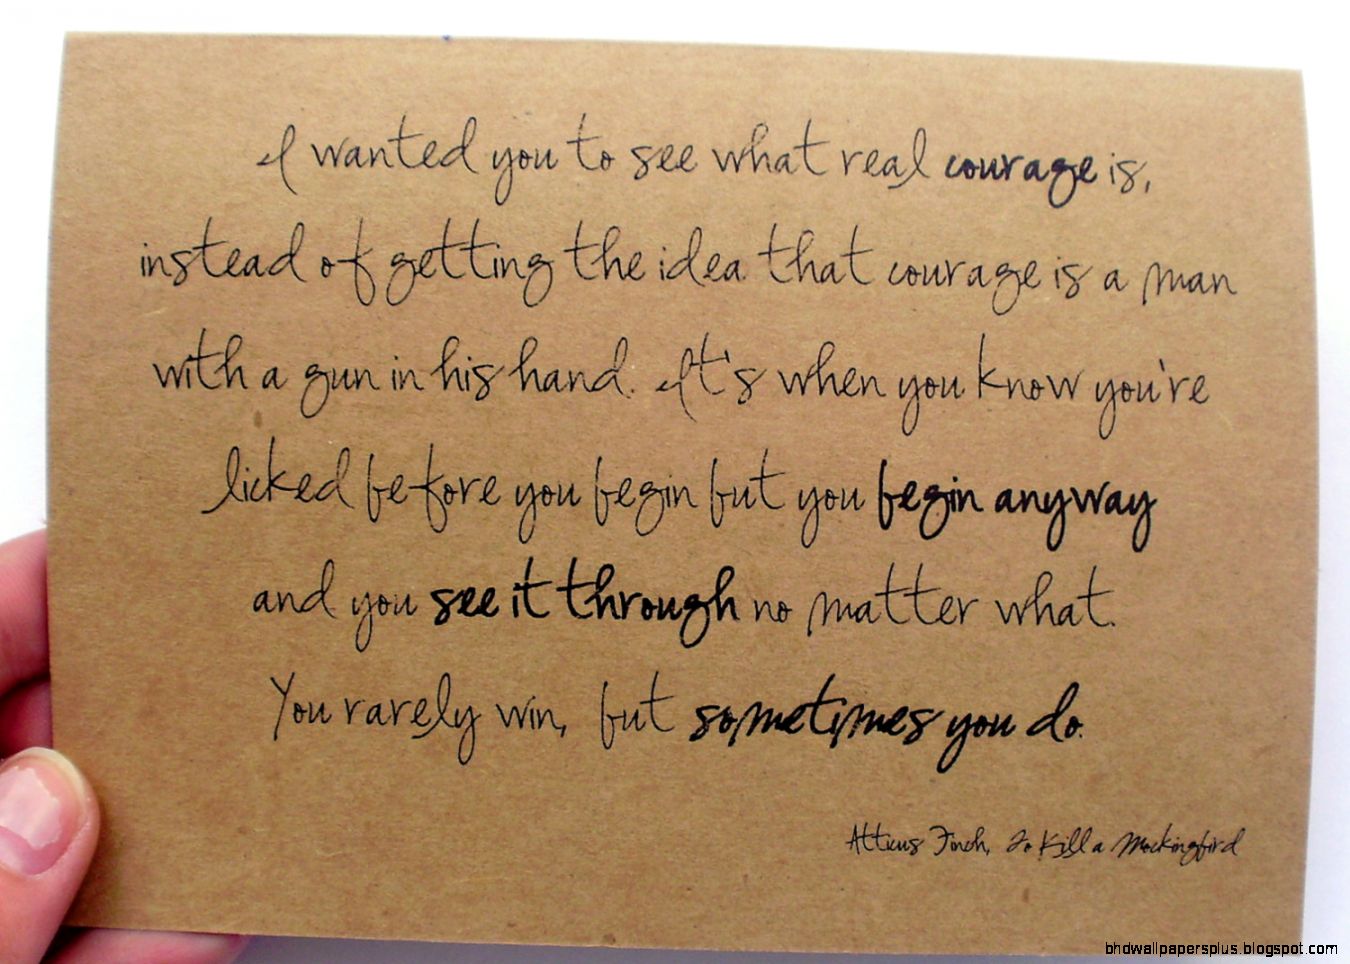 I wanted you to see what real courage is,
instead of getting the idea that courage is a man
with a gun in his hand. It's when you know you're
licked before you begin but you begin anyway
and you see it through no matter what.
You rarely win, but sometimes you do.
Atticus Finch, To Kill a Mockingbird
bhdwallpapersplus.blogspot.com